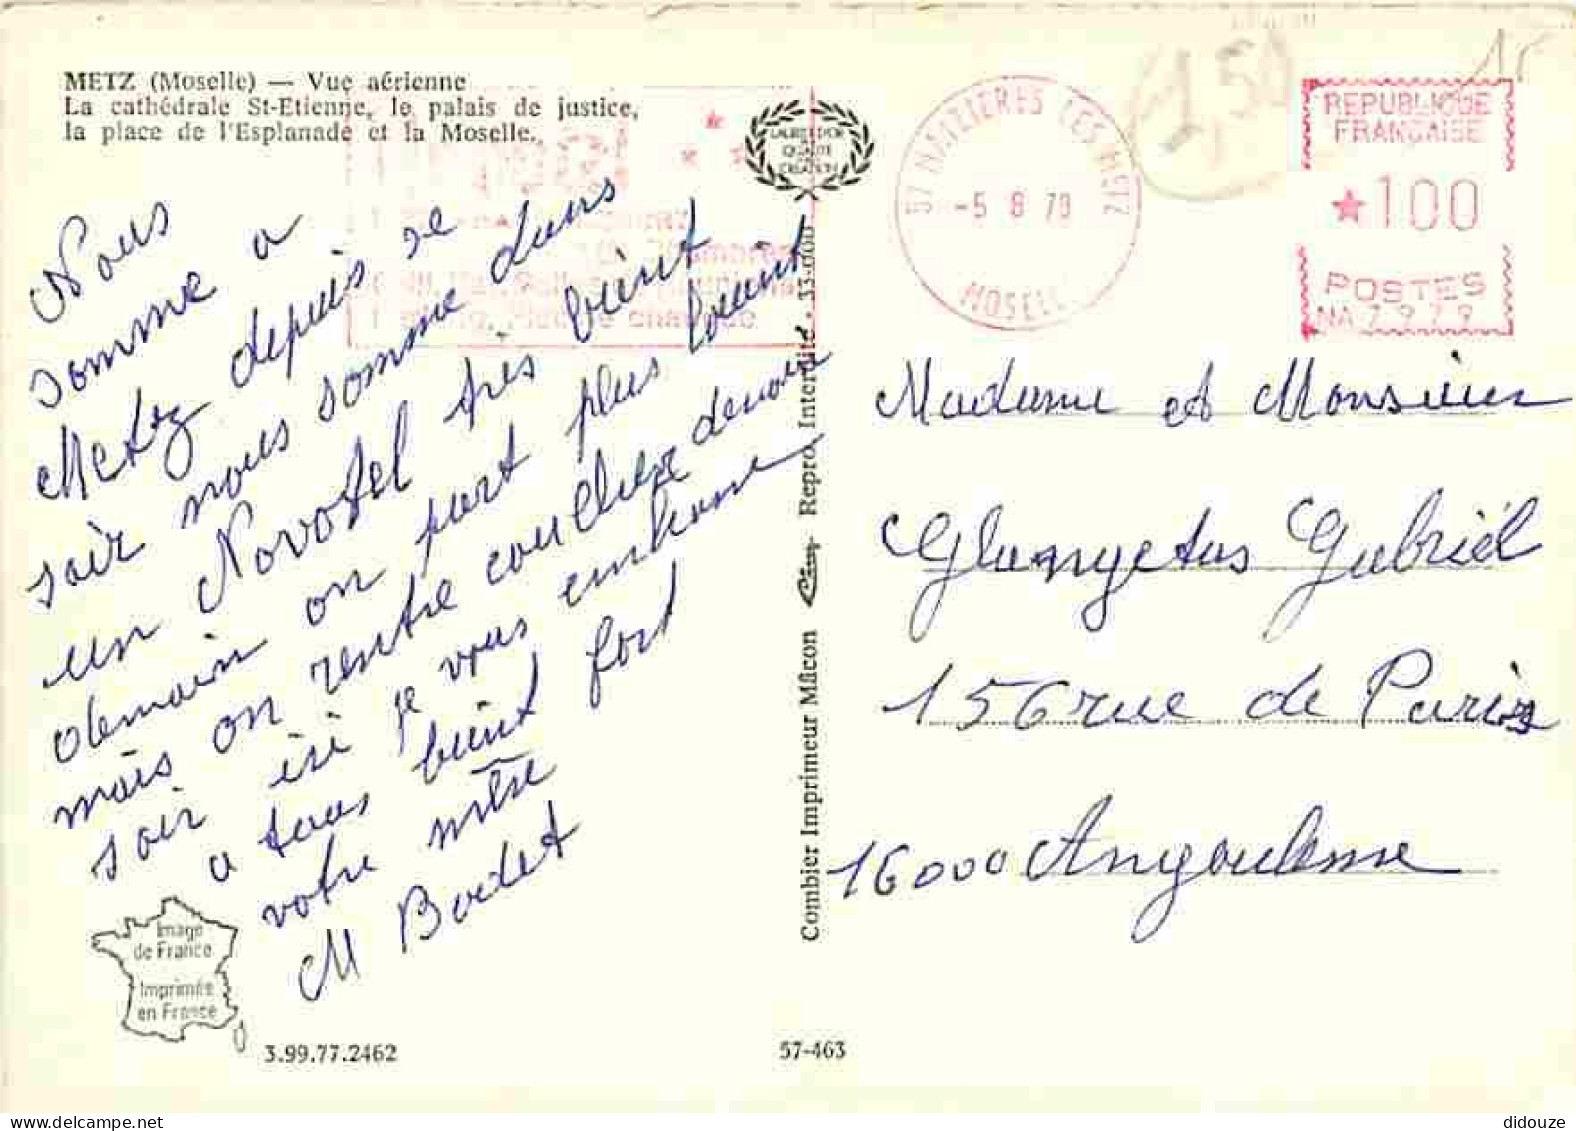 METZ (Moselle) — Vue aérienne
La cathédrale St-Etienne, le palais de justice,
la place de l'Esplanade et la Moselle.
LAURIER D'OR
QUALITÉ
CRÉATION
57 MAIZIERES LES METZ
-5 8 78
MOSELLE
1,50
REPUBLIQUE
FRANCAISE
★100
POSTES
NA 7979
Nous
somme a
Metz depuis se
soir nous somme dans
un Novotel très bient
demain on part plus louint
mais on rentre coucher
soir isi je vous embrasse
a tous bient fort
votre
M Bodet
Madame et Monsieur
Glangetas Gabriél
156 rue de Paris
16000 Angouleme
Combier Imprimeur Mâcon
Repro. Interdite - 33-000
Image
de France
Imprimée
en France
3.99.77.2462
57-463
didouze